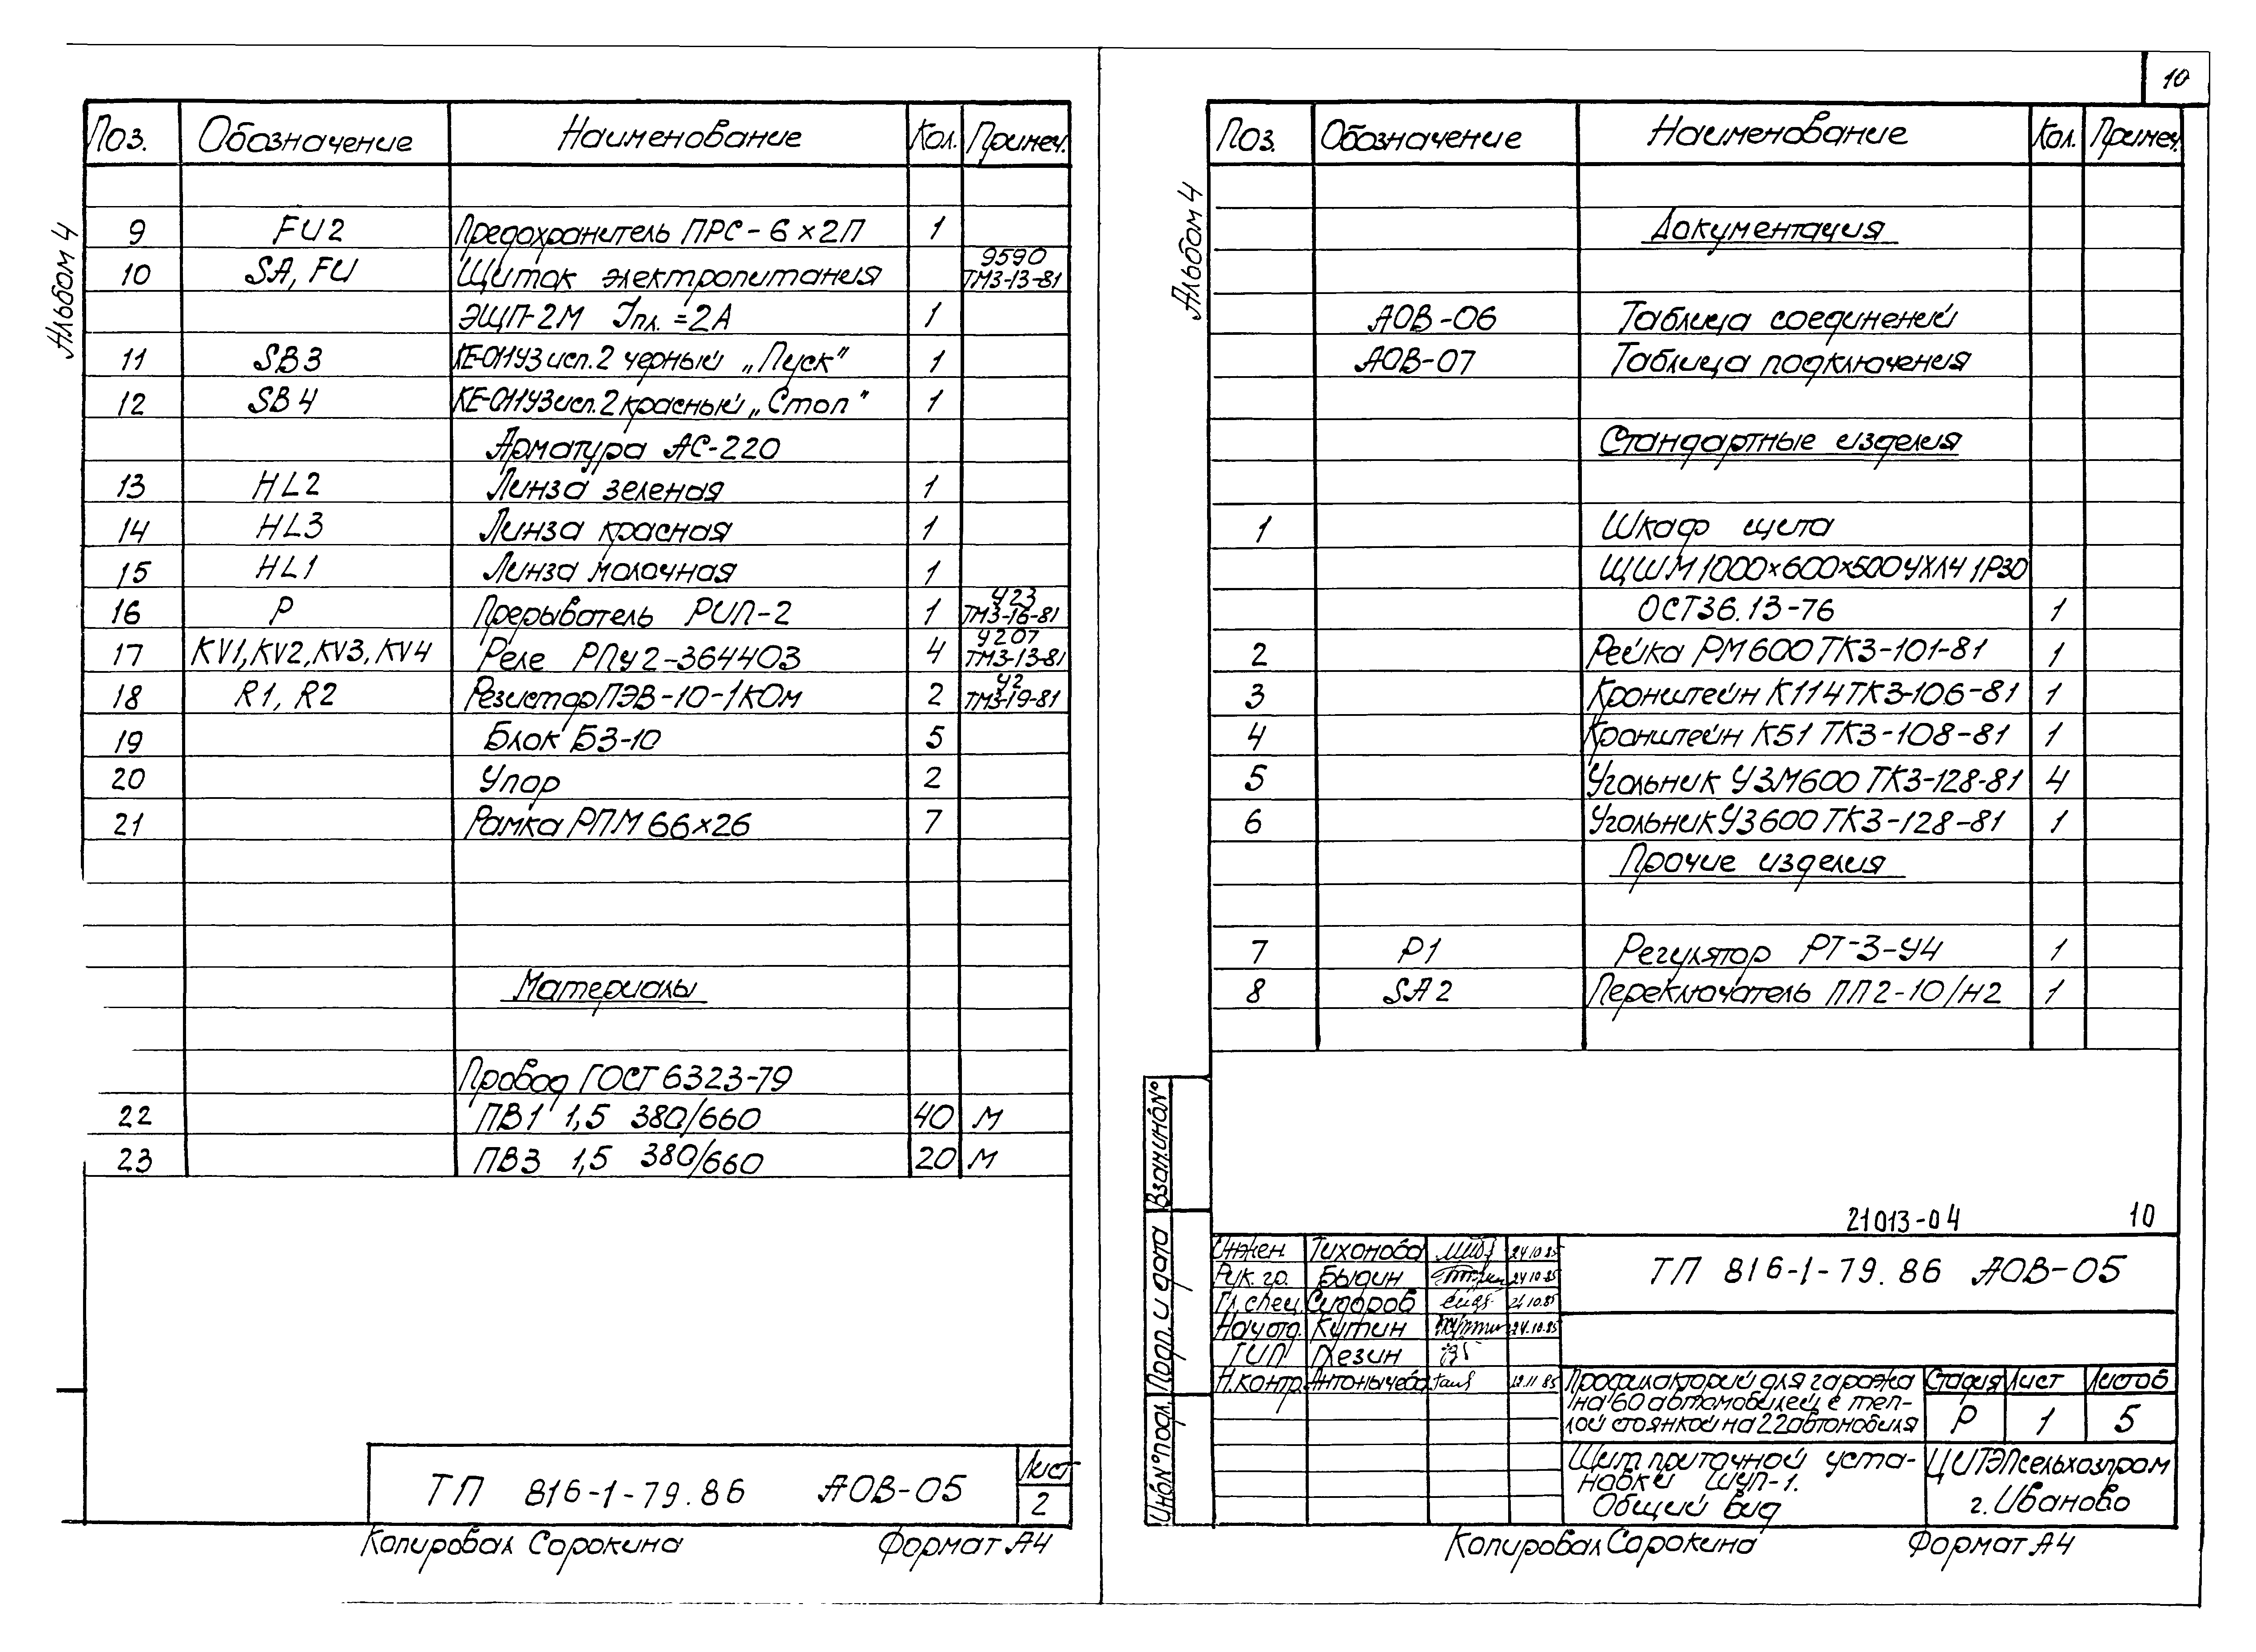 Альбом 4
Поз. Обозначение Наименование Кол. Примеч.
9 FU2 Предохранитель ПРС-6×2П 1
10 SA, FU Щиток электропитания 9590 ТМ3-13-81
ЭЩП-2М Iпл.=2А 1
11 SB3 КЕ-011У3 исп.2 черный „Пуск" 1
12 SB4 КЕ-011У3 исп.2 красный „Стоп" 1
Арматура АС-220
13 HL2 Линза зеленая 1
14 HL3 Линза красная 1
15 HL1 Линза молочная 1
16 P Прерыватель РИП-2 1 У23 ТМ3-16-81
17 KV1, KV2, KV3, KV4 Реле РПУ2-364403 4 У207 ТМ3-13-81
18 R1, R2 Резистор ПЭВ-10-1КОм 2 У2 ТМ3-19-81
19 Блок БЗ-10 5
20 Упор 2
21 Рамка РПМ 66×26 7
Материалы
Провод ГОСТ 6323-79
22 ПВ1 1,5 380/660 40 м
23 ПВ3 1,5 380/660 20 м
ТП 816-1-79.86 АОВ-05
Лист
2
Копировал Сорокина Формат А4
10
Альбом 4
Поз. Обозначение Наименование Кол. Примеч.
Документация
АОВ-06 Таблица соединений
АОВ-07 Таблица подключения
Стандартные изделия
1 Шкаф щита
ЩШМ 1000×600×500 УХЛ4 1Р30
ОСТ36.13-76 1
2 Рейка РМ600 ТК3-101-81 1
3 Кронштейн К114 ТК3-106-81 1
4 Кронштейн К51 ТК3-108-81 1
5 Угольник УЗМ600 ТК3-128-81 4
6 Угольник У3600 ТК3-128-81 1
Прочие изделия
7 P1 Регулятор РТ-3-У4 1
8 SA2 Переключатель ПП2-10/Н2 1
21013-04 10
Взам.инв№
Подп. и дата
Инв№ подл.
Инжен. Тихонова 24.10.85
Рук. гр. Быдин 24.10.85
Гл. спец. Сидоров 24.10.85
Нач отд. Кутин 24.10.85
ГИП Резин
Н.контр. Антонычева 19.11.85
ТП 816-1-79.86 АОВ-05
Профилакторий для гаража
на 60 автомобилей с теп-
лой стоянкой на 22 автомобиля
Стадия Лист Листов
Р 1 5
Щит приточной уста-
новки ЩУП-1.
Общий вид
ЦИТЭПсельхозпром
г. Иваново
Копировал Сорокина Формат А4